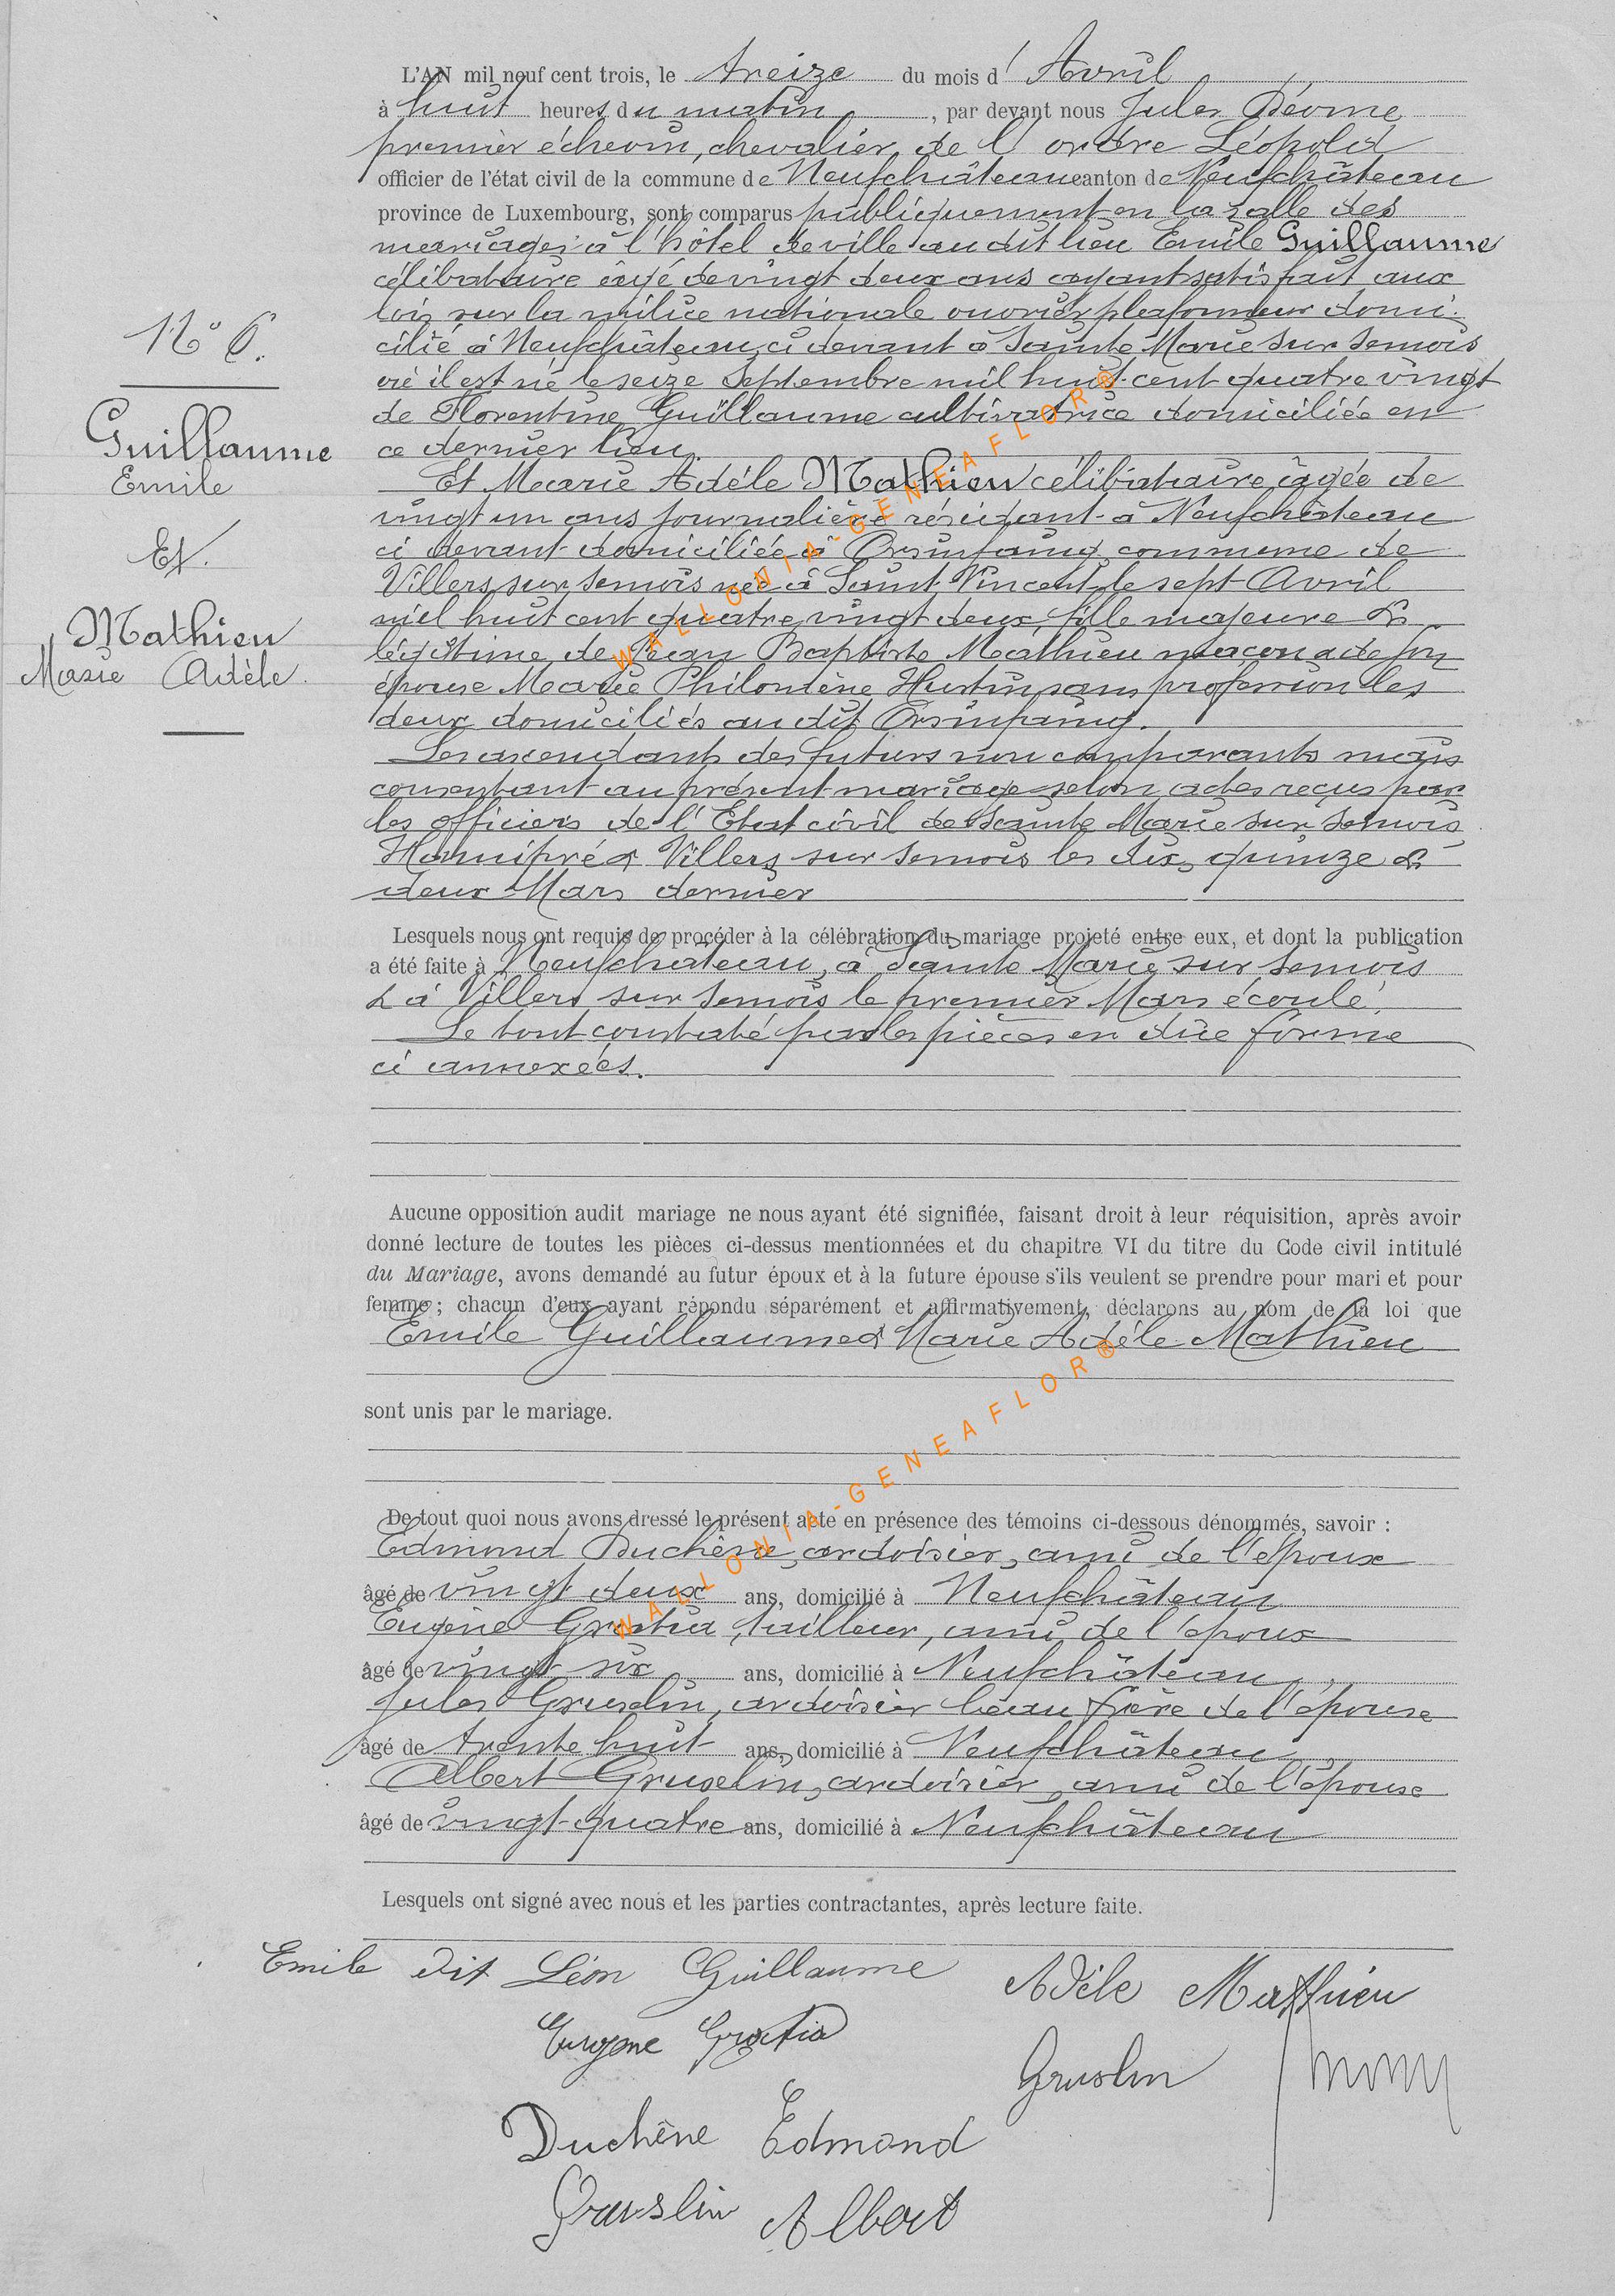 L'AN mil neuf cent trois, le treize du mois d'Avril
à huit heures du matin, par devant nous Jules Déome
premier échevin, chevalier de l'ordre Léopold
officier de l'état civil de la commune de Neufchâteau canton de Neufchâteau
province de Luxembourg, sont comparus publiquement en la salle des
mariages à l'hôtel de ville au dit lieu Emile Guillaume
célibataire âgé de vingt deux ans ayant satisfait aux
lois sur la milice nationale ouvrier plafonneur domi-
cilié à Neufchâteau, ci devant à Sainte Marie sur Semois
où il est né le seize Septembre mil huit cent quatre vingt
de Florentine Guillaume cultivatrice domiciliée en
ce dernier lieu.
Et Marie Adèle Mathieu célibataire âgée de
vingt un ans journalière résidant à Neufchâteau
ci devant domiciliée à Orsinfaing commune de
Villers sur Semois née à Saint Vincent le sept Avril
mil huit cent quatre vingt deux, fille majeure &
légitime de Jean Baptiste Mathieu maçon & de son
épouse Marie Philomène Hustin sans profession les
deux domiciliés au dit Orsinfaing.
Les ascendants des futurs non comparants mais
consentant au présent mariage selon actes reçus par
les officiers de l'Etat civil de Sainte Marie sur Semois
Hamipré & Villers sur Semois les dix, quinze &
deux Mars dernier
Lesquels nous ont requis de procéder à la célébration du mariage projeté entre eux, et dont la publication
a été faite à Neufchâteau, à Sainte Marie sur Semois
& à Villers sur Semois le premier Mars écoulé.
Le tout constaté par les pièces en due forme
ci annexées.
N° 6.
Guillaume
Emile
Et
Mathieu
Marie Adèle.
Aucune opposition audit mariage ne nous ayant été signifiée, faisant droit à leur réquisition, après avoir
donné lecture de toutes les pièces ci-dessus mentionnées et du chapitre VI du titre du Code civil intitulé
du Mariage, avons demandé au futur époux et à la future épouse s'ils veulent se prendre pour mari et pour
femme; chacun d'eux ayant répondu séparément et affirmativement, déclarons au nom de la loi que
Emile Guillaume & Marie Adèle Mathieu
sont unis par le mariage.
De tout quoi nous avons dressé le présent acte en présence des témoins ci-dessous dénommés, savoir :
Edmond Duchêne, ardoisier, ami de l'époux
âgé de vingt deux ans, domicilié à Neufchâteau
Eugène Gratia, tailleur, ami de l'époux
âgé de vingt six ans, domicilié à Neufchâteau
Jules Gruslin, ardoisier beau frère de l'épouse
âgé de trente huit ans, domicilié à Neufchâteau
Albert Gruselin, ardoisier, ami de l'épouse
âgé de vingt-quatre ans, domicilié à Neufchâteau
Lesquels ont signé avec nous et les parties contractantes, après lecture faite.
Emile dit Léon Guillaume
Adèle Mathieu
Eugene Gratia
Gruslin
Duchêne Edmond
Gruslin Albert
WALLONIA-GENEAFLOR®
WALLONIA-GENEAFLOR®